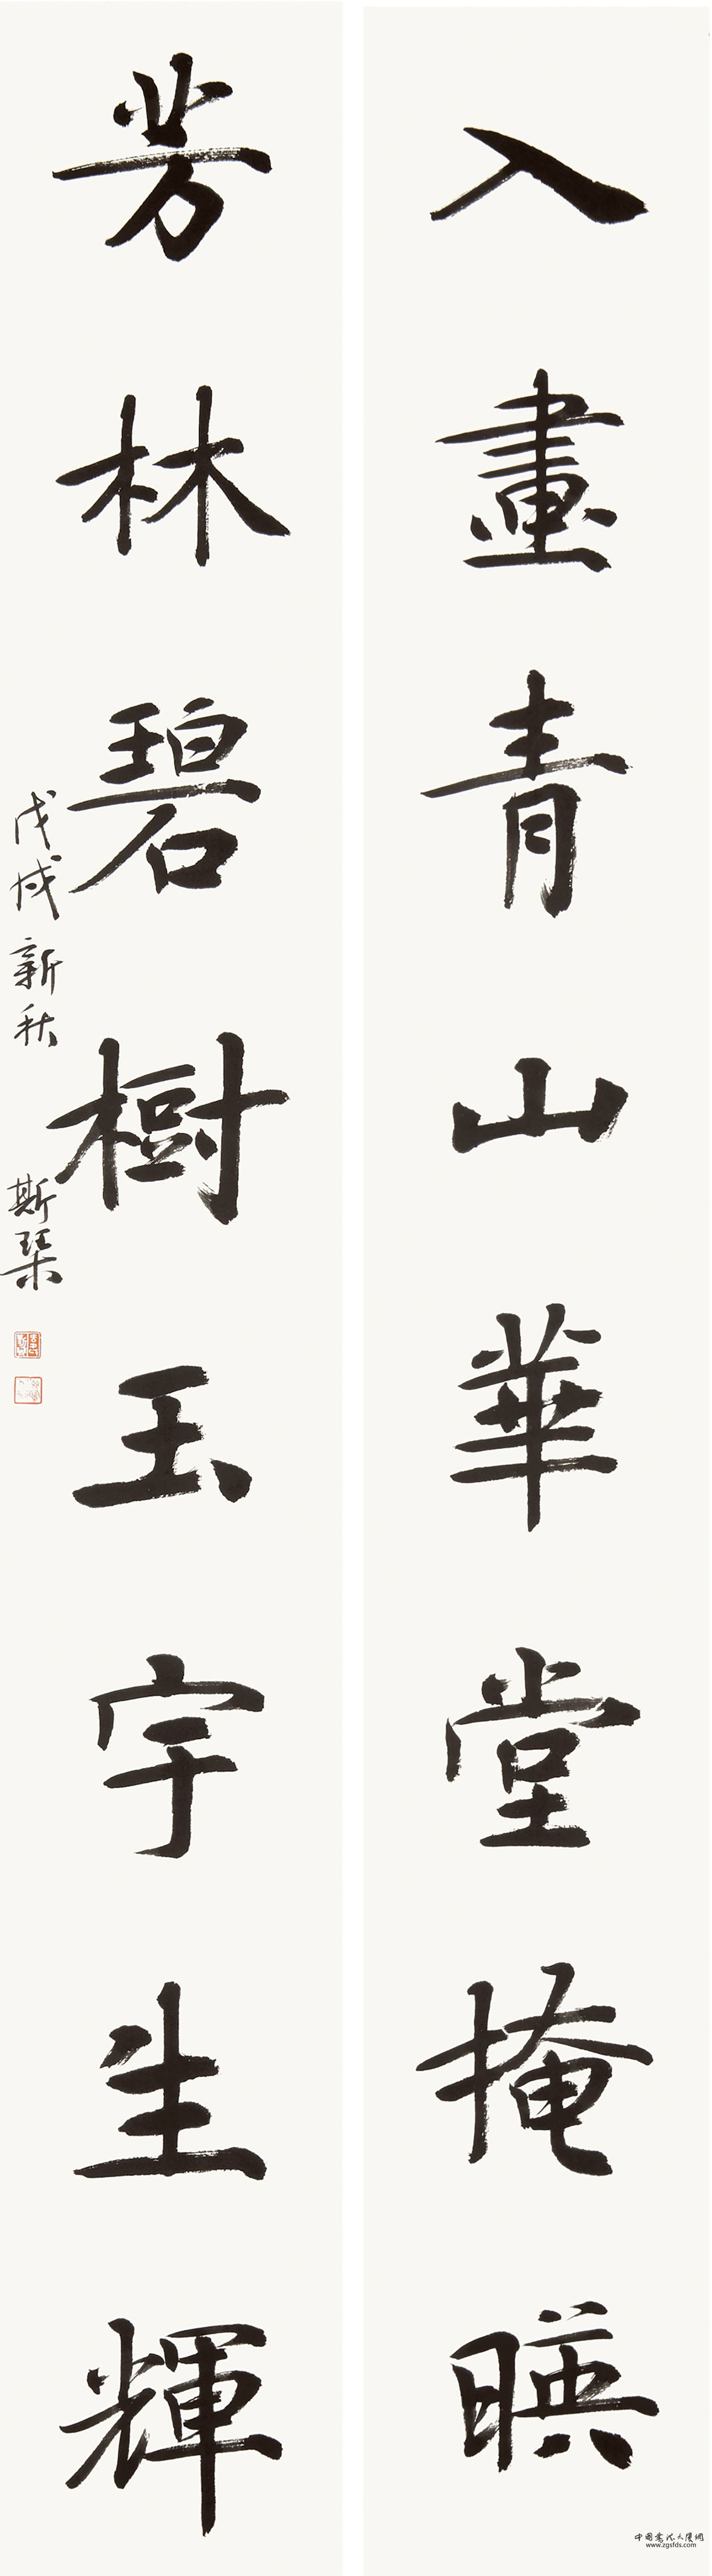 入畫青山華堂掩暎
芳林碧樹玉宇生輝
戊戌新秋 斯琹
中国書法大厦網
www.zgsfds.com